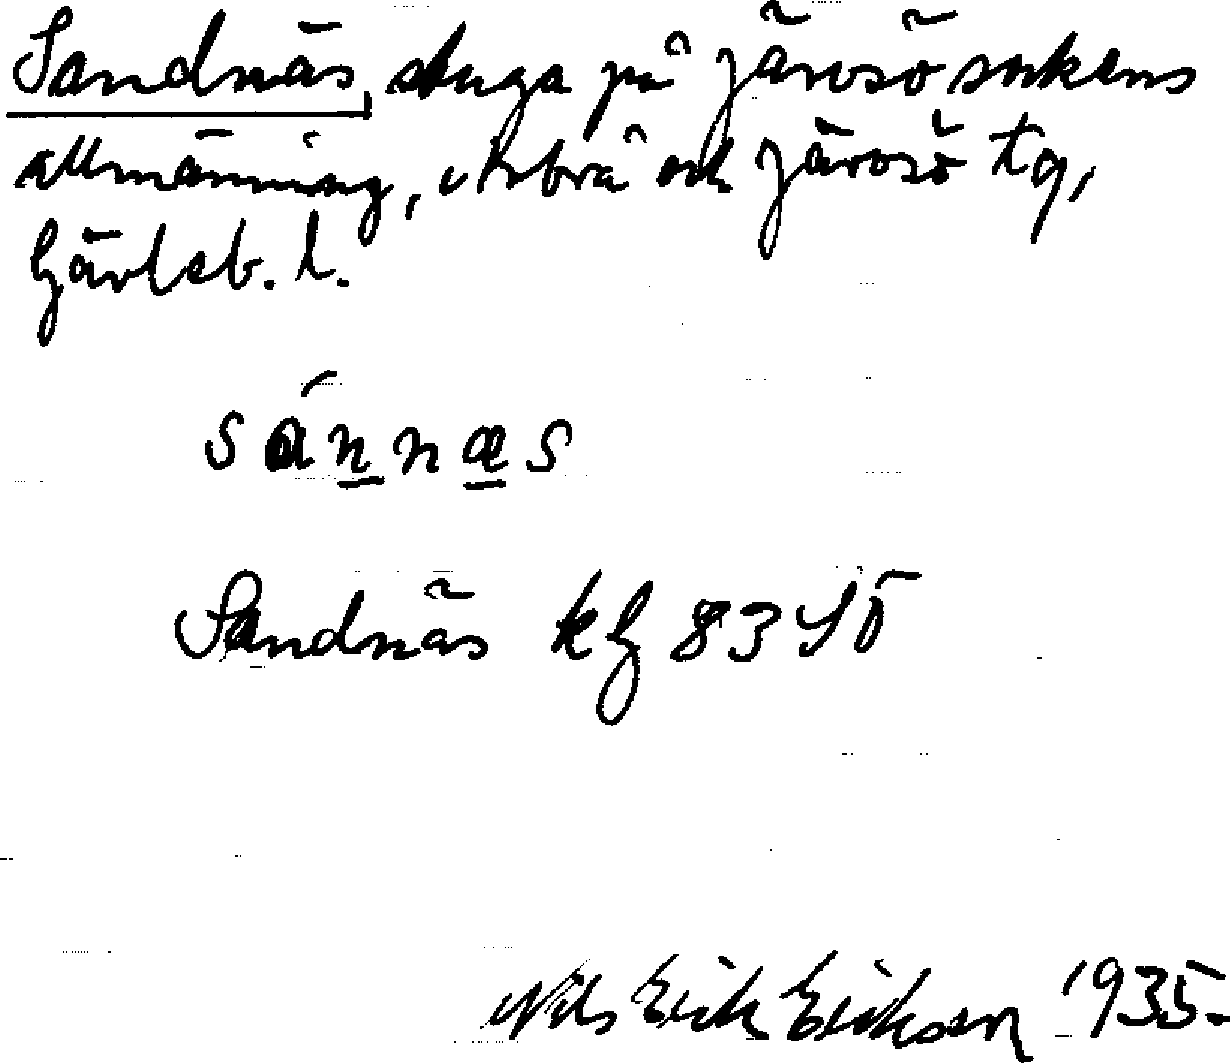 Sandnäs, stuga på Järvsö sokens
allmänning, Arbrå och Järvsö tg,
Gävleb. l.
sánnæs
Sandnäs kg 83 SÖ
Nils Erik Erikson 1935.